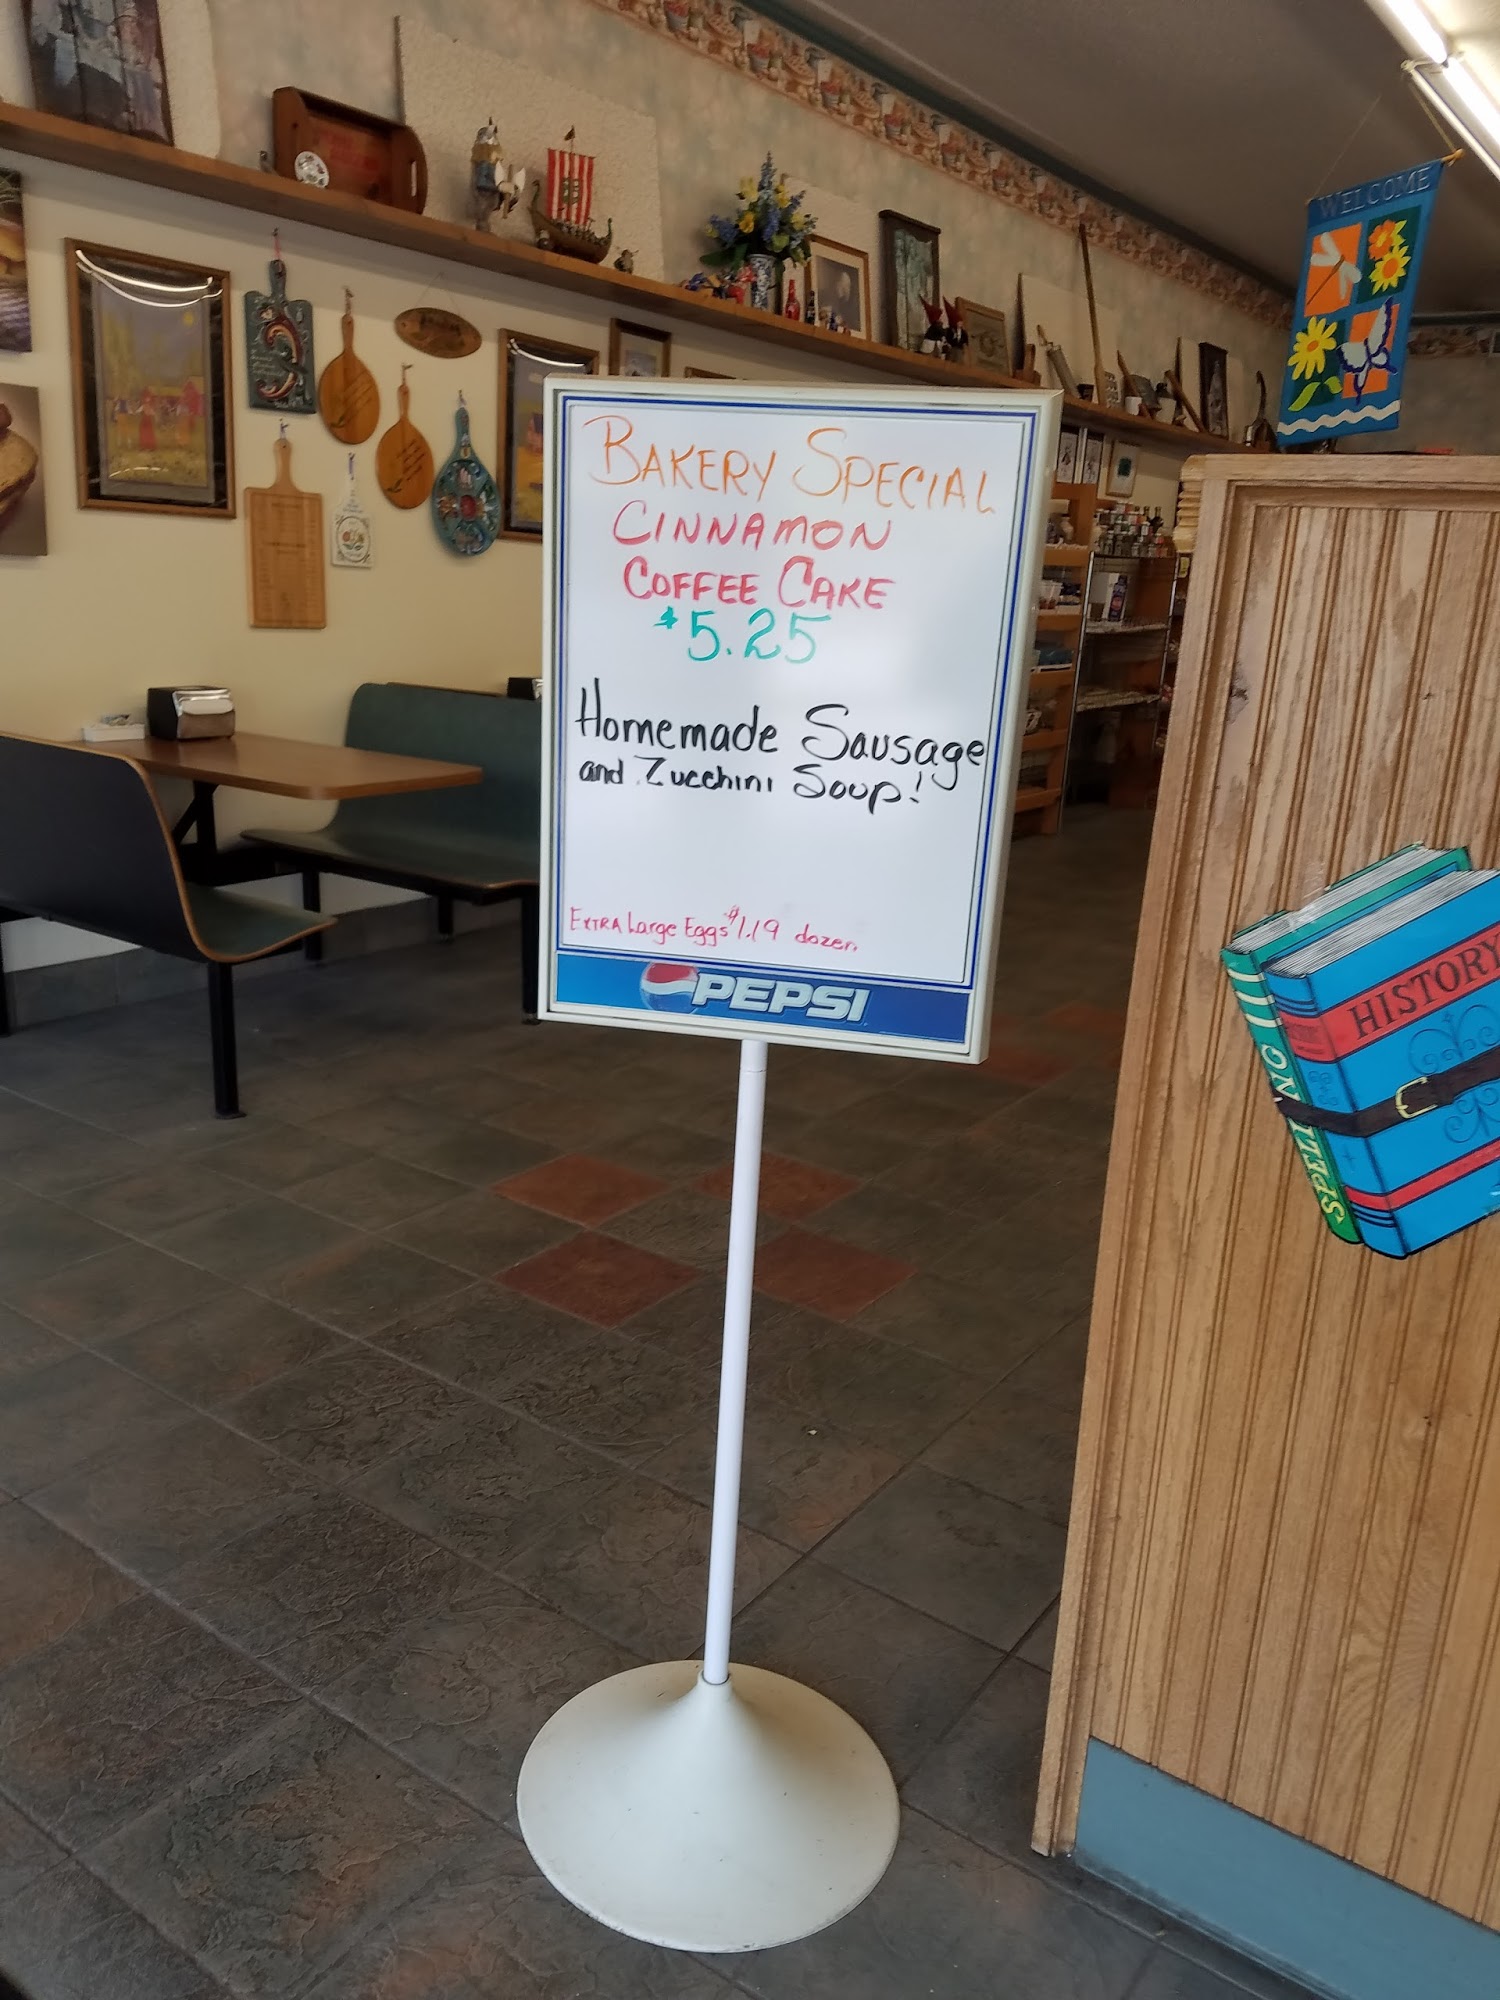 WELCOME
BAKERY SPECIAL
CINNAMON
COFFEE CAKE
$5.25
Homemade Sausage
and Zucchini Soup!
EXTRA Large Eggs $1.19 dozen
PEPSI
HISTORY
SPELLING